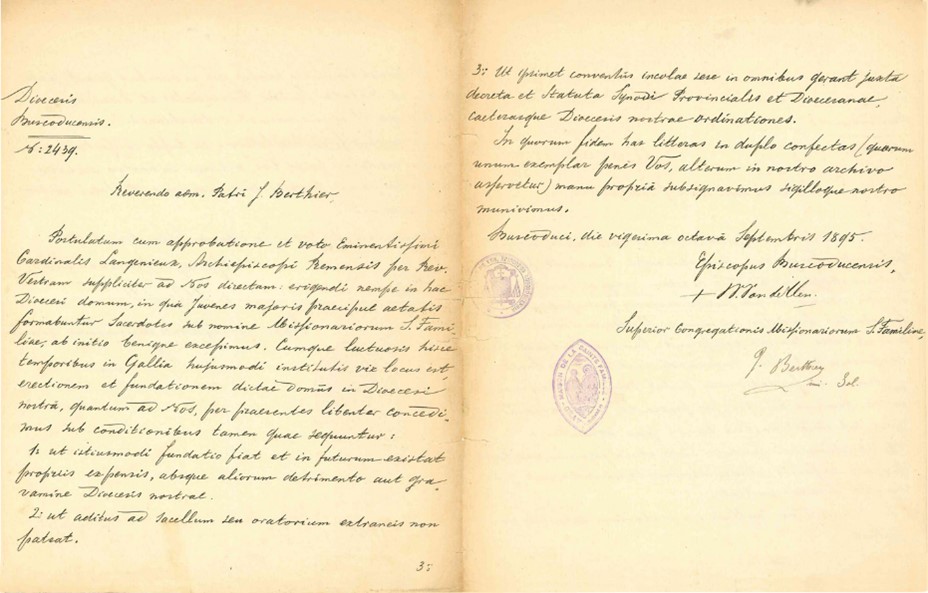 Dioecesis
Buscoducensis.
N: 2439.
Reverendo adm. Patri J. Berthier,
Postulatum cum approbatione et voto Eminentissimi
Cardinalis Langenieux, Archiepiscopi Remensis per Rev.
Vestram suppliciter ad Nos directam: erigendi nempe in hac
Dioecesi domum, in qua Juvenes majoris praecipue aetatis
formabuntur Sacerdotes sub nomine Missionariorum S. Fami-
liae, ab initio benigne excepimus. Cumque luctuosis hisce
temporibus in Gallia hujusmodi institutis vix locus est,
erectionem et fundationem dictae domus in Dioecesi
nostrâ, quantum ad Nos, per praesentes libenter concedi-
mus sub conditionibus tamen quae sequuntur:
1: ut istiusmodi fundatio fiat et in futurum existat
propriis expensis, absque aliorum detrimento aut gra-
vamine Dioecesis nostrae.
2: ut aditus ad sacellum seu oratorium extraneis non
pateat.
3:
3: Ut ipsimet conventûs incolae sese in omnibus gerant juxta
decreta et Statuta Synodi Provincialis et Dioecesanae,
caeterasque Dioecesis nostrae ordinationes.
In quorum fidem has litteras in duplo confectas (quorum
unum exemplar penes Vos, alterum in nostro archivo
asservetur) manu propriâ subsignavimus sigilloque nostro
munivimus.
Buscoduci, die vigesima octavâ Septembris 1895.
Episcopus Buscoducensis,
+ W. Van de Ven.
Superior Congregationis Missionariorum S. Familiae,
J. Berthier
DE LA SAINTE FAMILLE